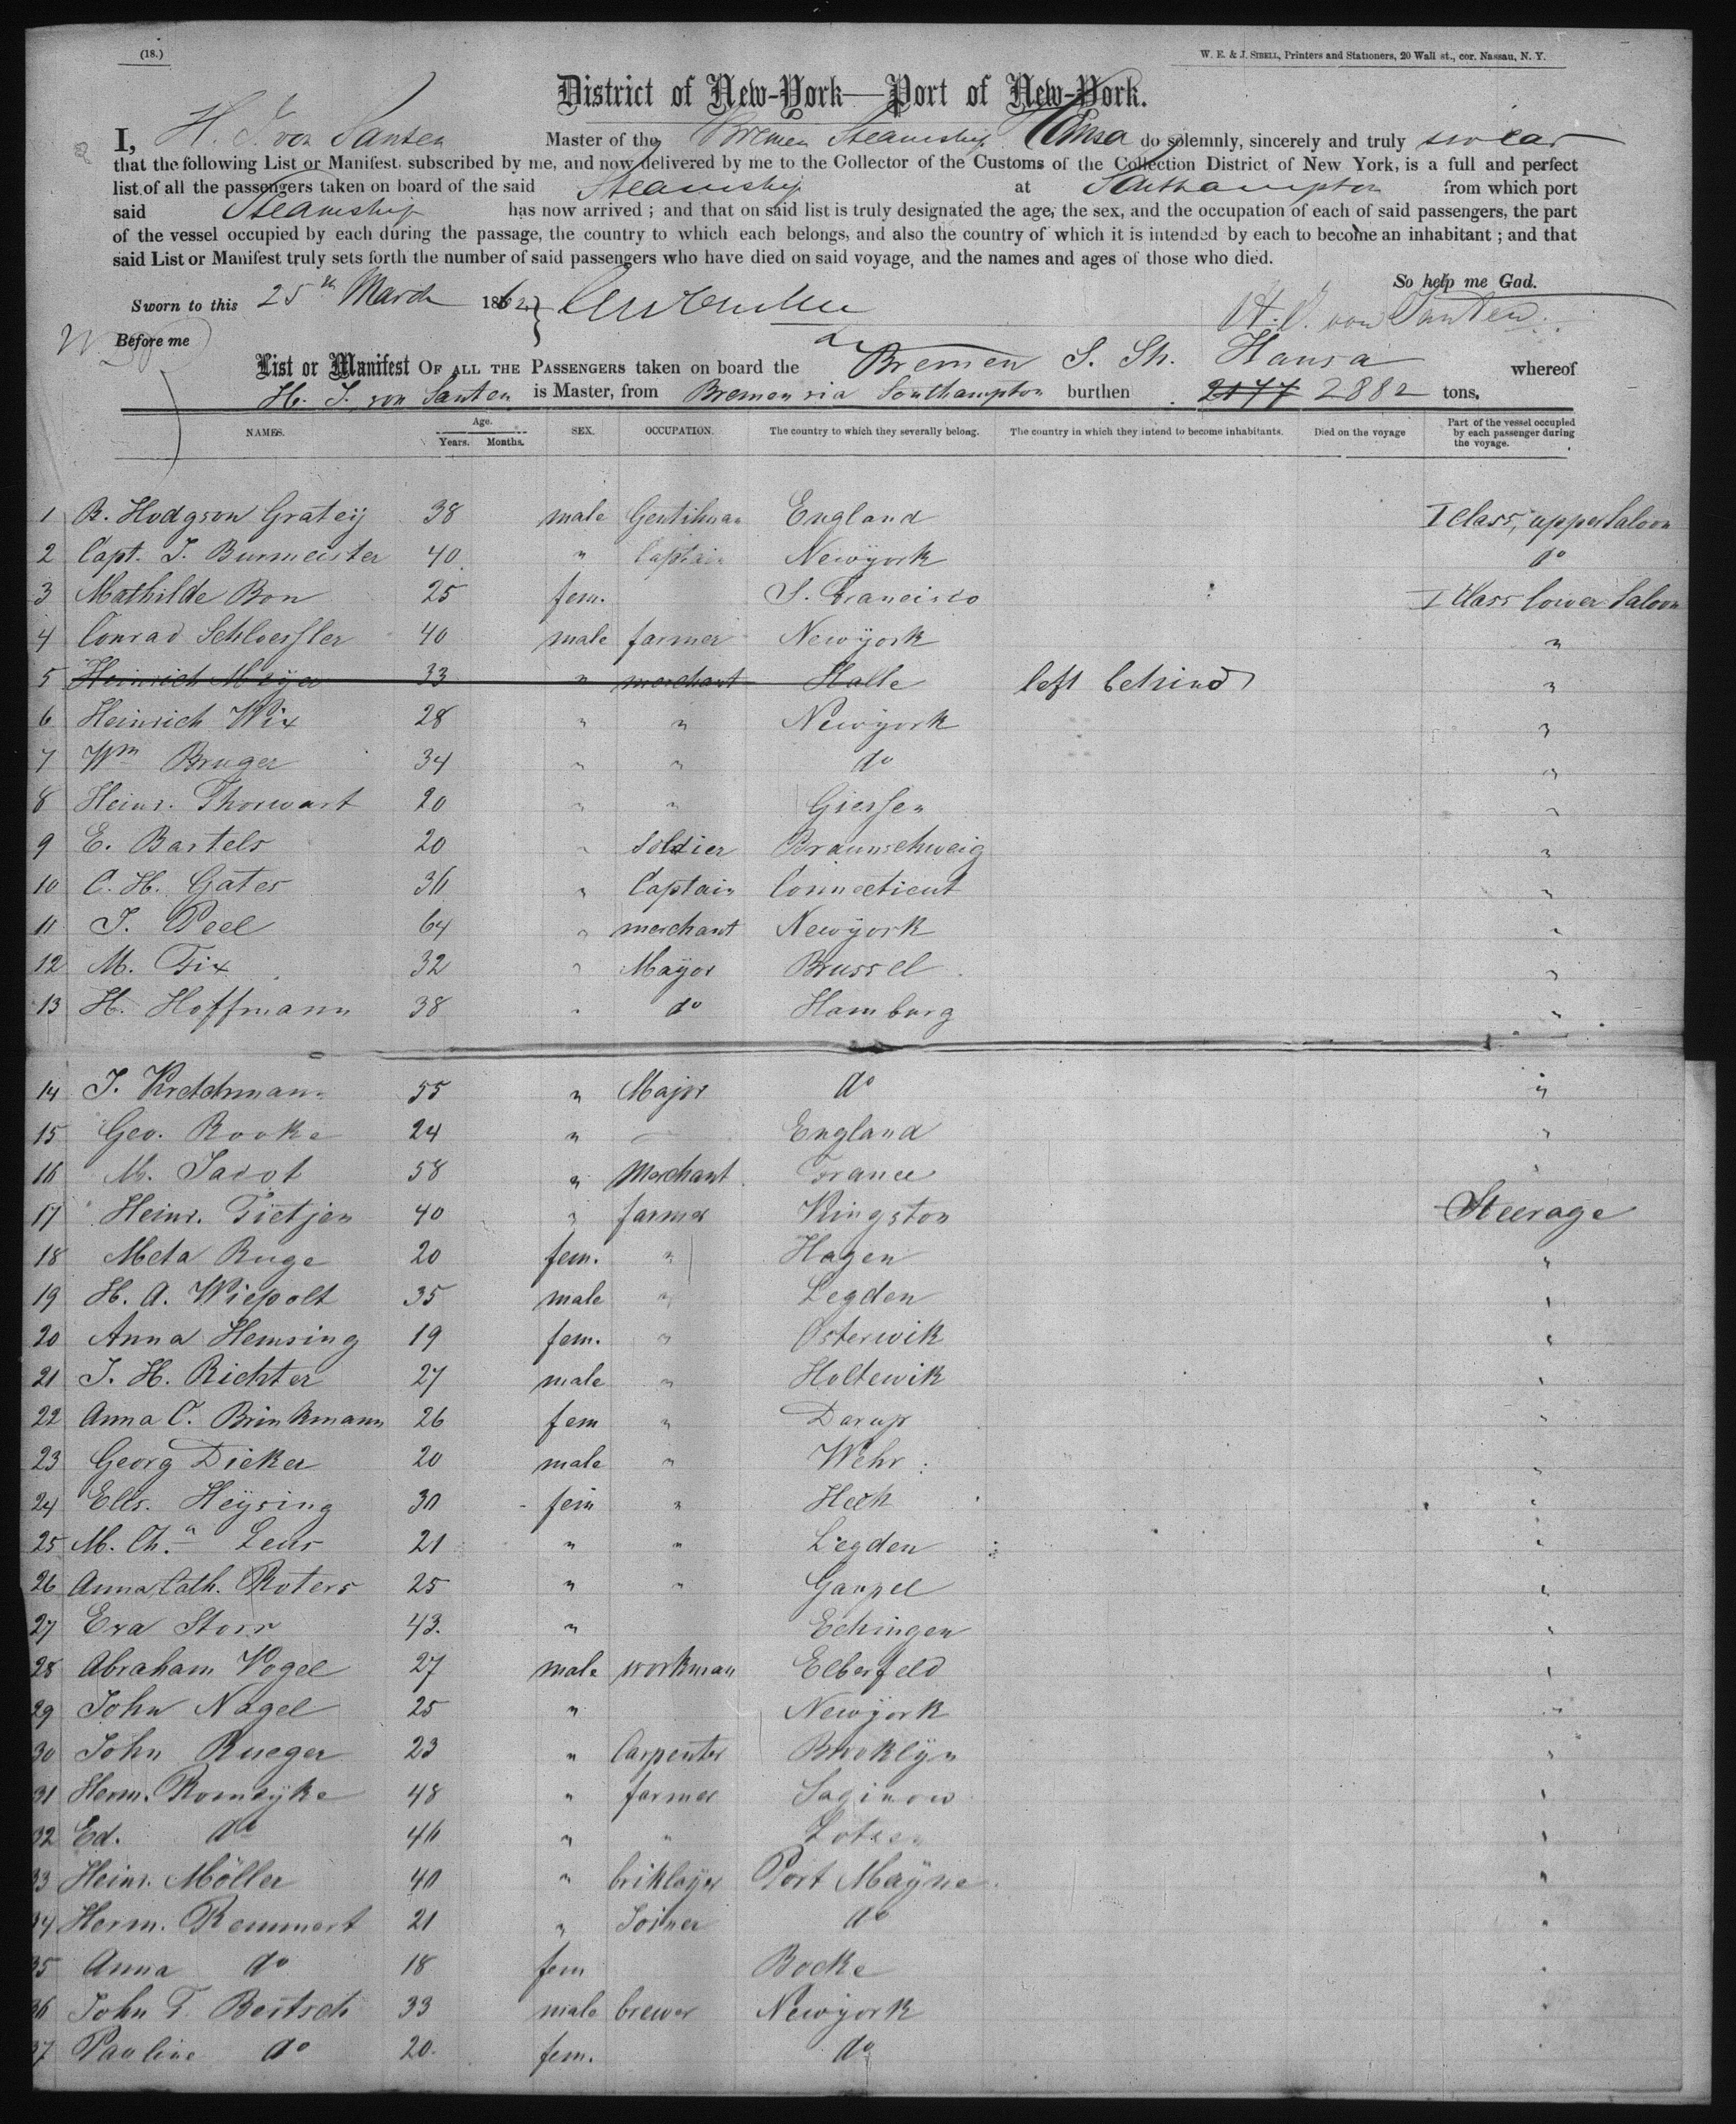 (18.)
W. E. & J. SIBELL, Printers and Stationers, 20 Wall st., cor. Nassau, N. Y.
District of New-York—Port of New-York.
I, H. J. von Santen Master of the Bremen Steamship Hansa do solemnly, sincerely and truly swear
that the following List or Manifest, subscribed by me, and now delivered by me to the Collector of the Customs of the Collection District of New York, is a full and perfect
list of all the passengers taken on board of the said Steamship at Southampton from which port
said Steamship has now arrived; and that on said list is truly designated the age, the sex, and the occupation of each of said passengers, the part
of the vessel occupied by each during the passage, the country to which each belongs, and also the country of which it is intended by each to become an inhabitant; and that
said List or Manifest truly sets forth the number of said passengers who have died on said voyage, and the names and ages of those who died.
So help me God.
Sworn to this 25th March 1862
H. J. von Santen.
Before me
List or Manifest OF ALL THE PASSENGERS taken on board the Bremen S. Sh. Hansa whereof
H. J. von Santen is Master, from Bremen via Southampton burthen 2177 2882 tons.
NAMES. Age. Years. Months. SEX. OCCUPATION. The country to which they severally belong. The country in which they intend to become inhabitants. Died on the voyage Part of the vessel occupied by each passenger during the voyage.
1 B. Hodgson Grateij 38 male Gentilman England I Class, upper Saloon
2 Capt. J. Burmeister 40 " Captain Newÿork do
3 Mathilde Bon 25 fem. S. Francisco I Class lower Saloon
4 Conrad Schloessler 40 male farmer Newÿork "
5 Heinrich Meyer 33 " merchant Halle left behind "
6 Heinrich Wix 28 " " Newÿork "
7 Wm Bruger 34 " " do "
8 Heinr. Thorwart 20 " " Giessen "
9 E. Bartels 20 " Soldier Braunschweig "
10 C. H. Gates 36 " Captain Connecticut "
11 J. Peel 64 " merchant Newÿork "
12 M. Fix 32 " Mayor Brussel "
13 H. Hoffmann 38 " do Hamburg "
14 J. Kretchmann 55 " Major do "
15 Geo. Rooke 24 " — England "
16 M. Jacot 58 " Merchant France "
17 Heinr. Tietjen 40 " farmer Kingston Steerage
18 Meta Ruge 20 fem. " Hagen "
19 H. A. Wiepolt 35 male " Legden "
20 Anna Hemsing 19 fem. " Osterwik "
21 J. H. Richter 27 male " Holtewik "
22 Anna C. Brinkmann 26 fem " Darup "
23 Georg Dicker 20 male " Wehr "
24 Elis. Heÿsing 30 fem " Heek "
25 M. Ch.a Leus 21 " " Legden "
26 Anna Cath. Roters 25 " " Gaupel "
27 Eva Storr 43. " Echingen "
28 Abraham Vogel 27 male workman Elberfeld "
29 John Nagel 25 " Newÿork "
30 John Rueger 23 " Carpenter Brooklÿn "
31 Herm. Romdÿke 48 " farmer Saginow "
32 Ed. do 46 " " "
33 Heinr. Möller 40 " briklayer Port Maÿne "
34 Herm. Remmert 21 " Joiner do "
35 Anna do 18 fem Bocke "
36 John F. Bertsch 33 male brewer Newÿork "
37 Pauline do 20. fem. do "